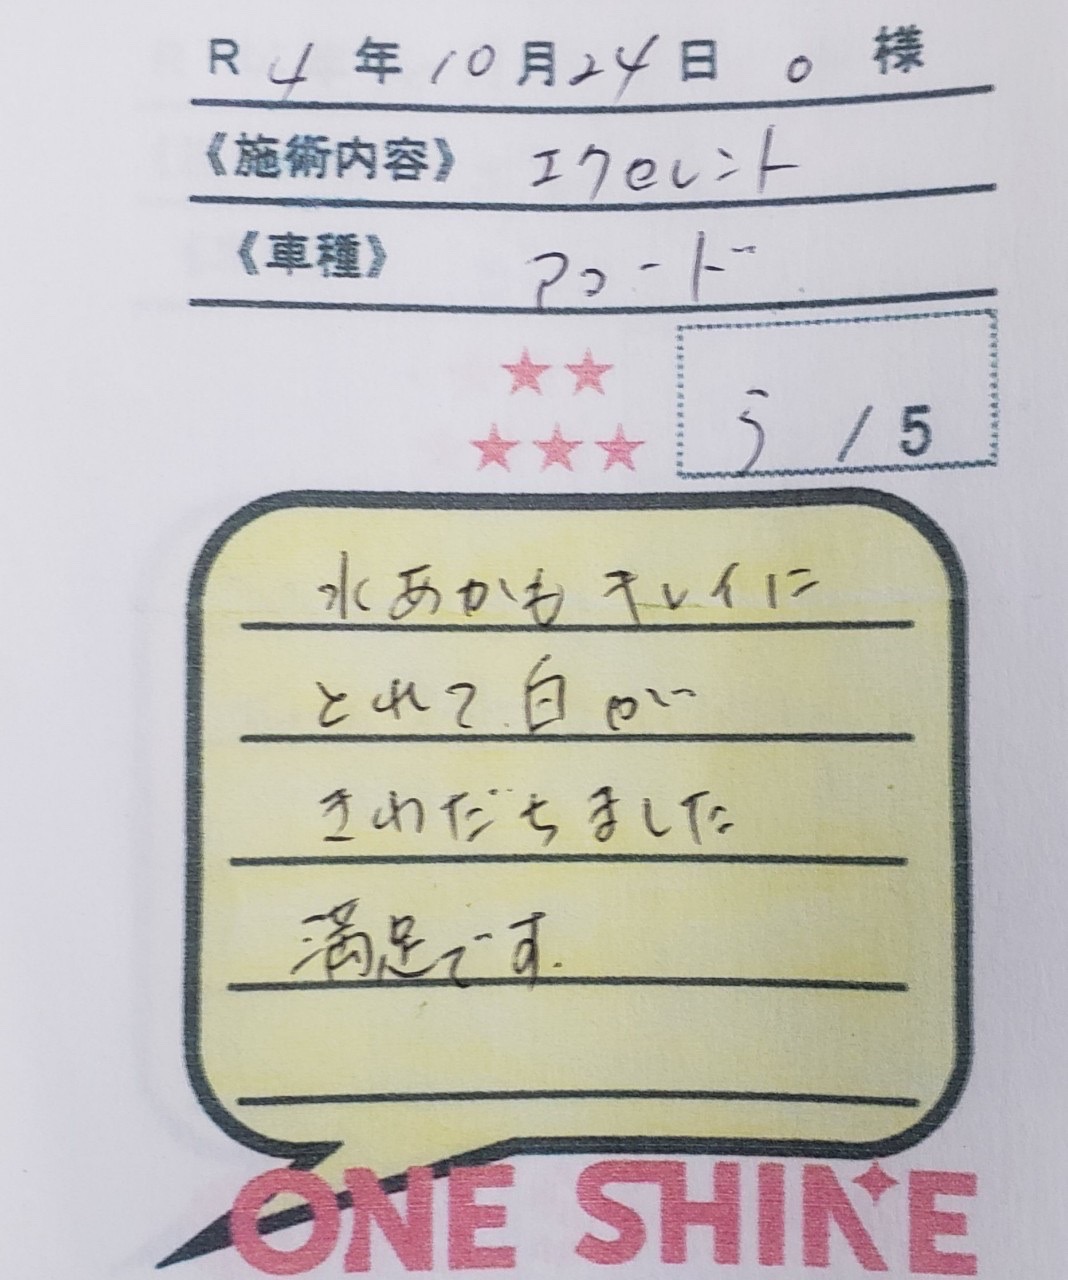 R 4 年 10 月 24 日 O 様
《施術内容》 エクセレント
《車種》 アコード
5 / 5
水あかも キレイに
とれて 白が
きわだちました
満足です.
ONE SHINE